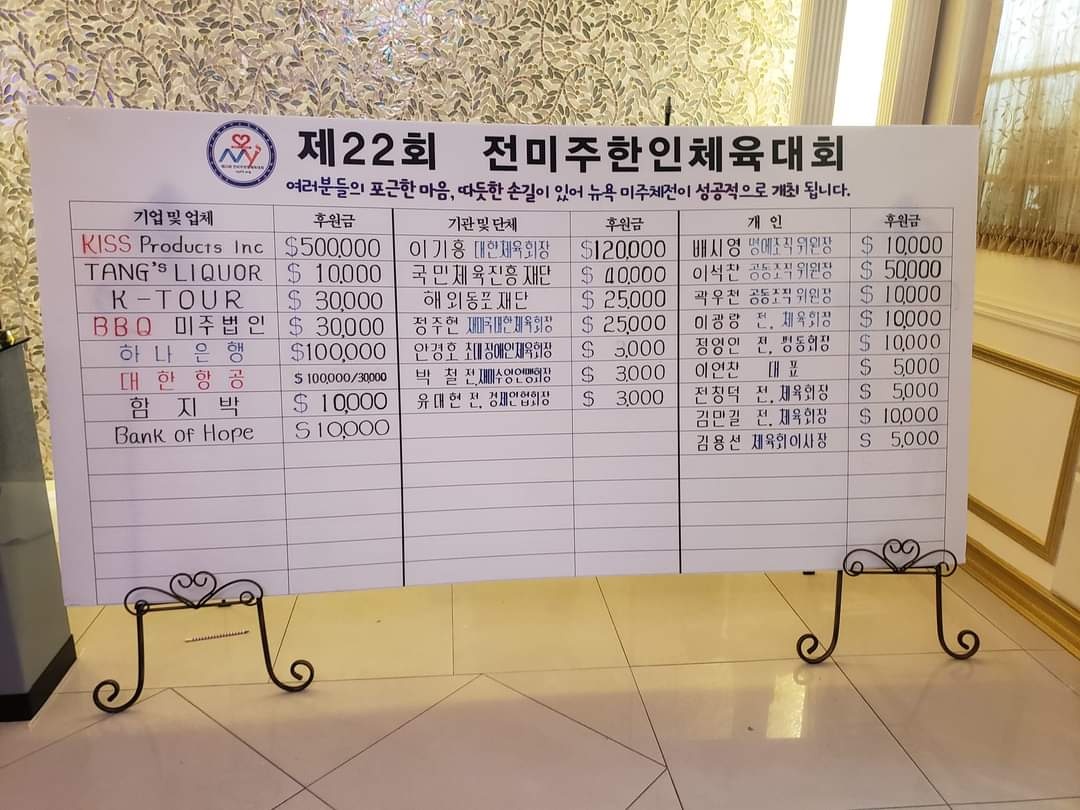 제22회 전미주한인체육대회
여러분들의 포근한 마음, 따뜻한 손길이 있어 뉴욕 미주체전이 성공적으로 개최 됩니다.
기업 및 업체 후원금 기관 및 단체 후원금 개 인 후원금
KISS Products Inc $500,000 이기흥 대한체육회장 $120,000 배시영 명예조직위원장 $ 10,000
TANG's LIQUOR $ 10,000 국민체육진흥재단 $ 40,000 이석찬 공동조직위원장 $ 50,000
K-TOUR $ 30,000 해외동포재단 $ 25,000 곽우천 공동조직위원장 $ 10,000
BBQ 미주법인 $ 30,000 정주현 재미국대한체육회장 $ 25,000 이광량 전.체육회장 $ 10,000
하나은행 $100,000 안경호 초대장애인체육회장 $ 3,000 정영인 전.평통회장 $ 10,000
대한항공 $100,000/30,000 박철 전.재미수영연맹회장 $ 3,000 이연찬 대표 $ 5,000
함지박 $ 10,000 유대현 전.경제인협회장 $ 3,000 전창덕 전.체육회장 $ 5,000
Bank of Hope $10,000 김만길 전.체육회장 $ 10,000
김용선 체육회이사장 $ 5,000